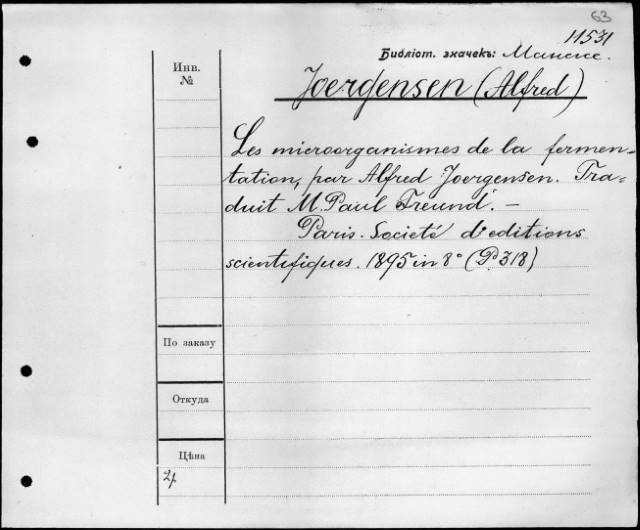 63
11531
Инв.
№
Библіот. значекъ:
Joergensen (Alfred)
Les microorganismes de la fermen-
tation, par Alfred Joergensen. Tra-
duit M. Paul Freund. –
Paris. Societé d'editions
scientifiques. 1895 in 8° (P. 318)
По заказу
Откуда
Цѣна
2р